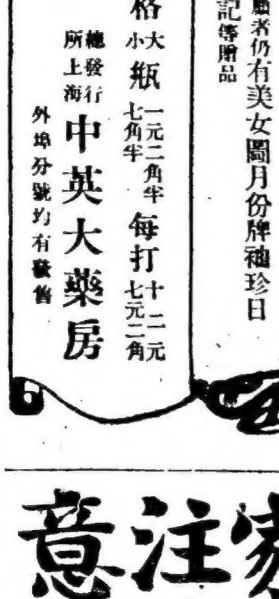 顧者仍有美女圖月份牌袖珍日
記等贈品
格大瓶一元二角半每打十二元
小七角半七元二角
總發行所上海中英大藥房
外埠分號均有發售
意注家